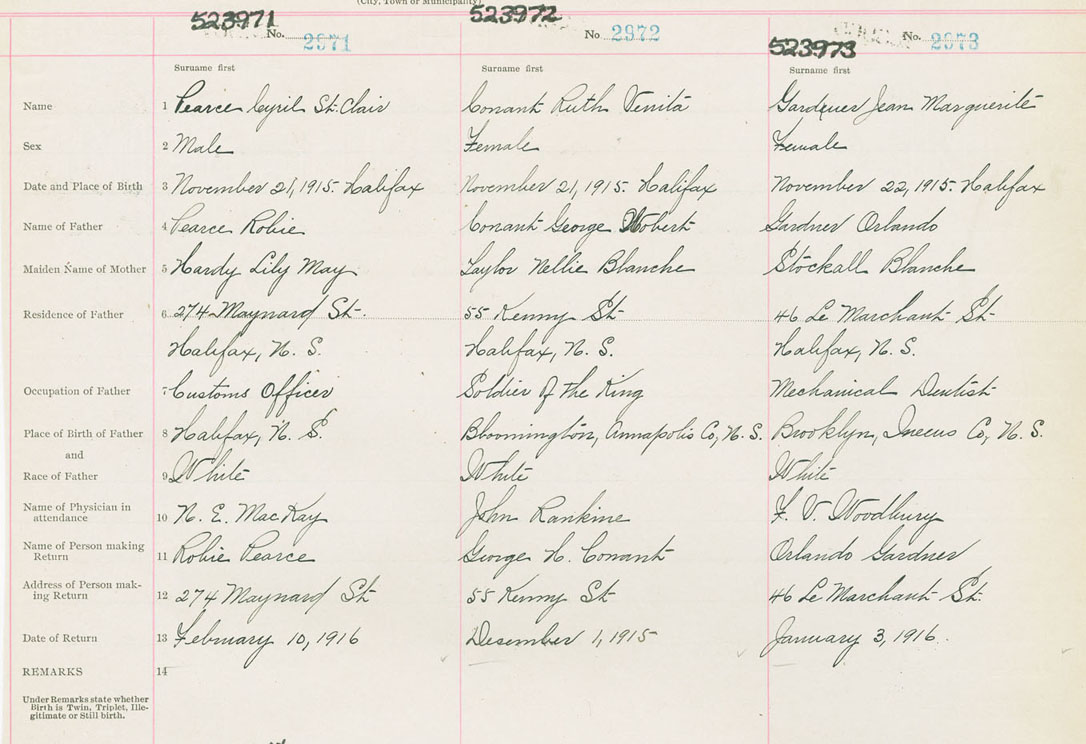 (City, Town or Municipality)
523971 523972
No. 2971 No 2972 No. 2973
523973
Surname first Surname first Surname first
Name 1 Pearce Cyril St. Clair Conant Ruth Venita Gardner Jean Marguerite
Sex 2 Male Female Female
Date and Place of Birth 3 November 21, 1915. Halifax November 21, 1915. Halifax November 22, 1915. Halifax
Name of Father 4 Pearce Robie Conant George Gardner Orlando
Maiden Name of Mother 5 Hardy Lily May Taylor Nellie Blanche Stockall Blanche
Residence of Father 6 274 Maynard St. 55 Kenny St 46 Le Marchant St
Halifax, N. S. Halifax, N. S. Halifax, N. S.
Occupation of Father 7 Customs Officer Soldier of the King Mechanical Dentist
Place of Birth of Father 8 Halifax, N. S. Bloomington, Annapolis Co, N. S. Brooklyn, Co, N. S.
and
Race of Father 9 White White White
Name of Physician in attendance 10 N. E. MacKay John Rankine F. V. Woodbury
Name of Person making Return 11 Robie Pearce George H. Conant Orlando Gardner
Address of Person mak-
ing Return 12 274 Maynard St 55 Kenny St 46 Le Marchant St.
Date of Return 13 February 10, 1916 Desember 1, 1915 January 3, 1916.
REMARKS 14
Under Remarks state whether
Birth is Twin, Triplet, Ille-
gitimate or Still birth.